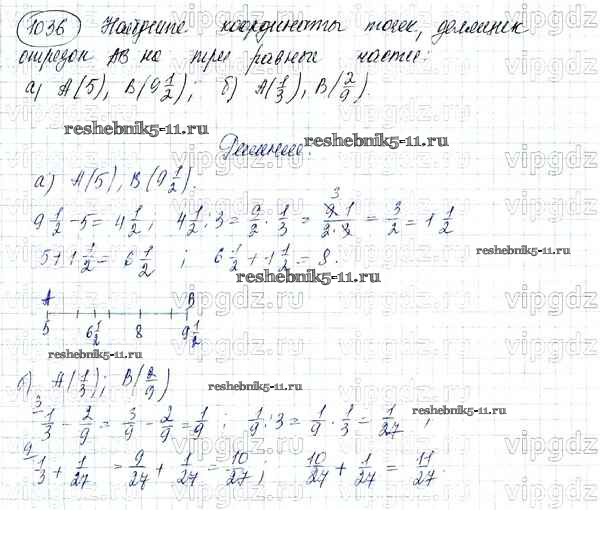 1036 Найдите координаты точек, делящих
отрезок AB на три равные части:
а) A(5), B(9 1/2); б) A(1/3), B(2/9).
reshebnik5-11.ru
Решение.
reshebnik5-11.ru
а) A(5), B(9 1/2).
9 1/2 - 5 = 4 1/2; 4 1/2 : 3 = 9/2 · 1/3 = 9·1/2·3 = 3/2 = 1 1/2
5 + 1 1/2 = 6 1/2 ; 6 1/2 + 1 1/2 = 8.
reshebnik5-11.ru
A B
5 6 1/2 8 9 1/2
reshebnik5-11.ru
б) A(1/3); B(2/9)
reshebnik5-11.ru
1/3 - 2/9 = 3/9 - 2/9 = 1/9 ; 1/9 : 3 = 1/9 · 1/3 = 1/27 ;
reshebnik5-11.ru
1/3 + 1/27 = 9/27 + 1/27 = 10/27 ; 10/27 + 1/27 = 11/27.
vipgdz.ru